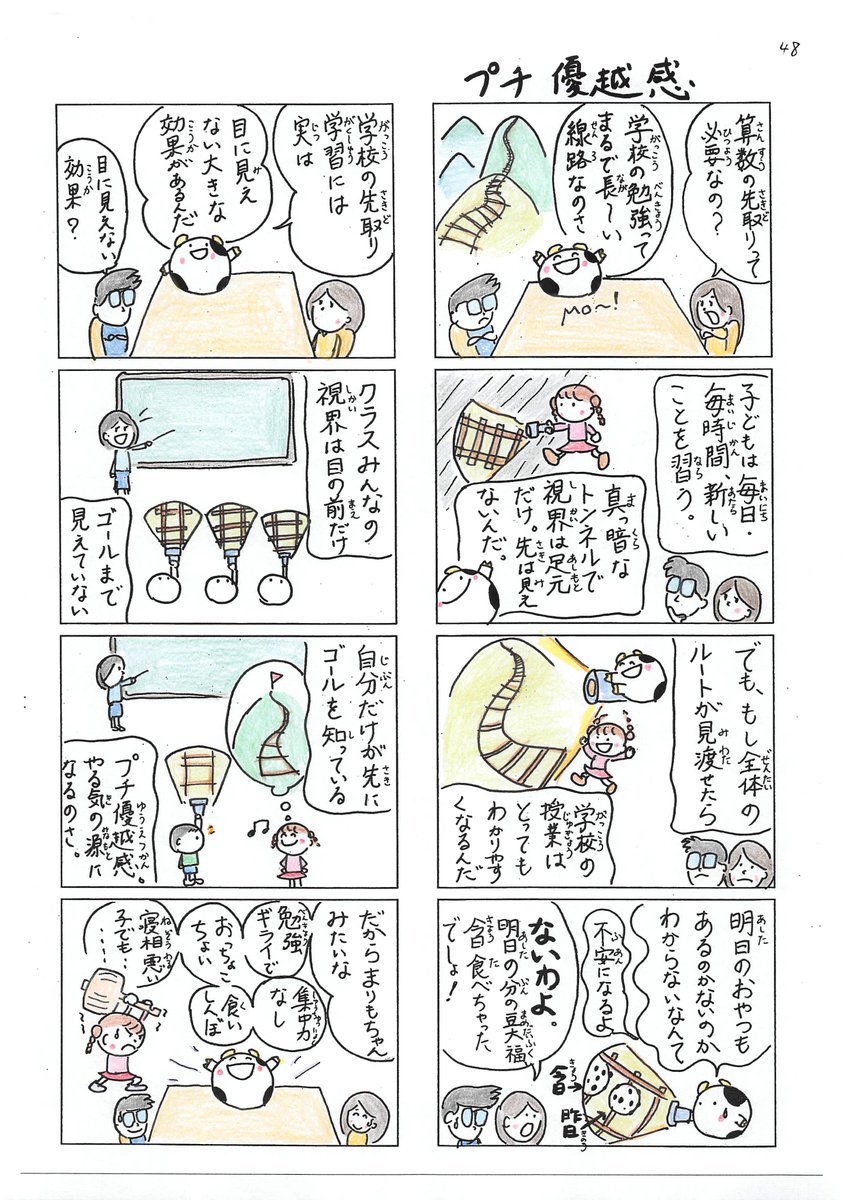 48
プチ優越感
算数の先取りって
必要なの?
学校の勉強って
まるで長〜い
線路なのさ
MO〜!
子どもは毎日・
毎時間、新しい
ことを習う。
真っ暗な
トンネルで
視界は足元
だけ。先は見え
ないんだ。
でも、もし全体の
ルートが見渡せたら
学校の
授業は
とっても
わかりやす
くなるんだ
明日のおやつも
あるのかないのか
わからないなんて
不安になるよ
今日→
昨日
ないわよ。
明日の分の豆大福
今日食べちゃった
でしょ!
学校の先取り
学習には
実は
目に見え
ない大きな
効果があるんだ
目に見えない
効果?
クラスみんなの
視界は目の前だけ
ゴールまで
見えていない
自分だけが先に
ゴールを知っている
プチ優越感。
やる気の源に
なるのさ。
だからまりもちゃん
みたいな
勉強
ギライで
集中力
なし
おっちょこ
ちょい
食い
しんぼ
寝相悪い
子でも……